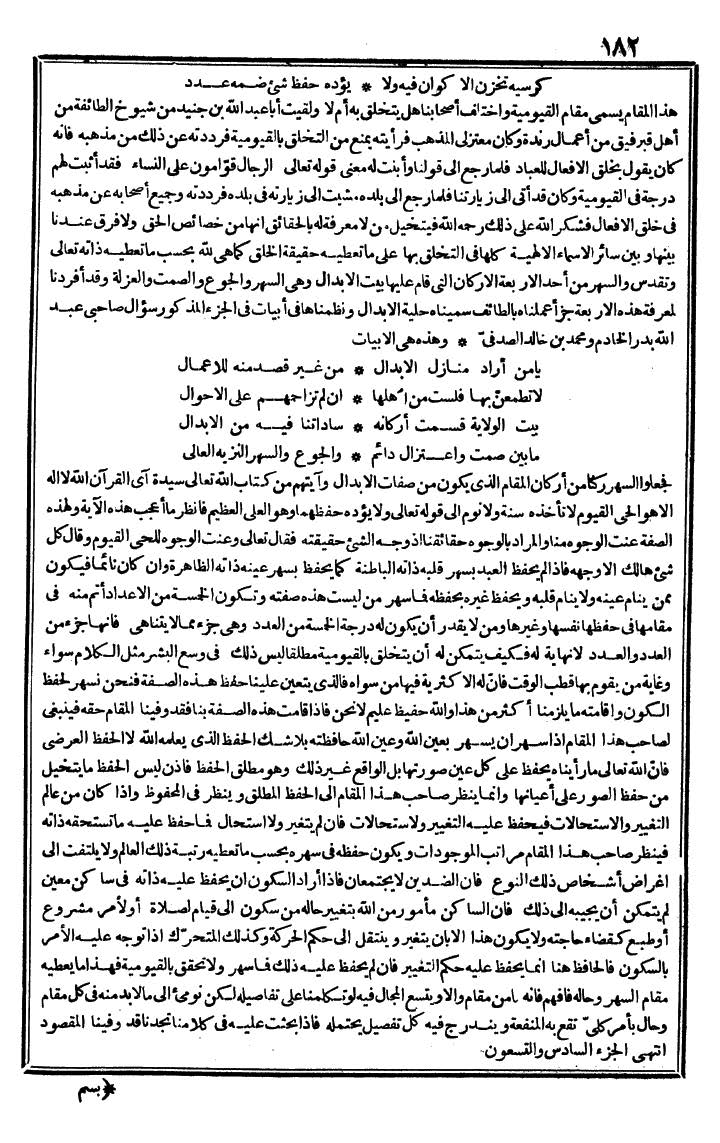 ١٨٢
كرسيه تخزن الاكوان فيه ولا * يؤده حفظ شئ ضمه عدد
هذا المقام يسمى مقام القيومية واختلف أصحابنا هل يتخلق به أم لا ولقيت أبا عبد الله بن جنيد من شيوخ الطائفة من
أهل قبر فيق من أعمال رندة وكان معتزلى المذهب فرأيته يمنع من التخلق بالقيومية فرددته عن ذلك من مذهبه فانه
كان يقول بخلق الافعال للعباد فلما رجع الى قولنا وأبنت له معنى قوله تعالى الرجال قوّامون على النساء فقد أثبت لهم
درجة فى القيومية وكان قد أتى الى زيارتنا فلما رجع الى بلده مشيت الى زيارته فى بلده فرددته وجميع أصحابه عن مذهبه
فى خلق الافعال فشكر الله على ذلك رحمه الله فيتخيل من لا معرفة له بالحقائق انها من خصائص الحق ولا فرق عندنا
بينها وبين سائر الاسماء الالهية كلها فى التخلق بها على ما تعطيه حقيقة الخلق كما هى لله بحسب ما تعطيه ذاته تعالى
وتقدس والسهر من أحد الاربعة الاركان التى قام عليها بيت الابدال وهى السهر والجوع والصمت والعزلة وقد أفردنا
لمعرفة هذه الاربعة جزأ عملناه بالطائف سميناه حلية الابدال ونظمناها فى أبيات فى الجزء المذكور سؤال صاحبى عبد
الله بدر الخادم ومحمد بن خالد الصدفىّ * وهذه هى الابيات
يامن أراد منازل الابدال * من غير قصد منه للاعمال
لا تطمعنّ بها فلست من أهلها * ان لم تزاحمهم على الاحوال
بيت الولاية قسمت أركانه * ساداتنا فيه من الابدال
مابين صمت واعتزال دائم * والجوع والسهر النزيه العالى
فجعلوا السهر ركنا من أركان المقام الذى يكون من صفات الابدال وآيتهم من كتاب الله تعالى سيدة آى القرآن الله لا اله
الا هو الحى القيوم لا تأخذه سنة ولا نوم الى قوله تعالى ولا يؤده حفظهما وهو العلى العظيم فانظر ما أعجب هذه الآية ولهذه
الصفة عنت الوجوه منا والمراد بالوجوه حقائقنا اذ وجه الشئ حقيقته فقال تعالى وعنت الوجوه للحى القيوم وقال كل
شئ هالك الا وجهه فاذا لم يحفظ العبد بسهر قلبه ذاته الباطنة كما يحفظ بسهر عينه ذاته الظاهرة وان كان نائما فيكون
ممن ينام عينه ولا ينام قلبه ويحفظ غيره بحفظه فما سهر من ليست هذه صفته وتكون الخمسة من الاعداد أتم منه فى
مقامها فى حفظها نفسها وغيرها ومن لا يقدر أن يكون له درجة الخمسة من العدد وهى جزء مما لا يتناهى فانها جزء من
العدد والعدد لانهاية له فكيف يتمكن له أن يتخلق بالقيومية مطلقا ليس ذلك فى وسع البشر مثل الكلام سواء
وغاية من يقوم بها قطب الوقت فان له الاكثرية فيها من سواه فالذى يتعين علينا حفظ هذه الصفة فنحن نسهر لحفظ
الكون واقامته ما يلزمنا أكثر من هذا والله حفيظ عليم لا نحن فاذا قامت هذه الصفة بنا فقد وفينا المقام حقه فينبغى
لصاحب هذا المقام اذا سهر ان يسهر بعين الله وعين الله حافظته بلا شك الحفظ الذى يعلمه الله لا الحفظ العرضى
فان الله تعالى ما رأيناه يحفظ على كل عين صورتها بل الواقع غير ذلك وهو مطلق الحفظ فاذن ليس الحفظ ما يتخيل
من حفظ الصور على أعيانها وانما ينظر صاحب هذا المقام الى الحفظ المطلق وينظر فى المحفوظ واذا كان من عالم
التغيير والاستحالات فيحفظ عليه التغيير والاستحالات فان لم يتغير ولا استحال فما حفظ عليه ما تستحقه ذاته
فينظر صاحب هذا المقام مراتب الموجودات ويكون حفظه فى سهره بحسب ما تعطيه رتبة ذلك العالم ولا يلتفت الى
اغراض أشخاص ذلك النوع فان الضدين لا يجتمعان فاذا أراد السكون ان يحفظ عليه ذاته فى ساكن معين
لم يتمكن أن يجيبه الى ذلك فان الساكن مأمور من الله بتغيير حاله من سكون الى قيام لصلاة أو لأمر مشروع
أو طبع كقضاء حاجته ولا يكون هذا الا بان يتغير وينتقل الى حكم الحركة وكذلك المتحرّك اذا توجه عليه الأمر
بالسكون فالحافظ هنا انما يحفظ عليه حكم التغيير فان لم يحفظ عليه ذلك فما سهر ولا تحقق بالقيومية فهذا ما يعطيه
مقام السهر وحاله فافهم فانه ما من مقام والا ويتسع المجال فيه لو تكلمنا على تفاصيله لكن نومئ الى ما لابد منه فى كل مقام
وحال بأمر كلىّ تقع به المنفعة ويندرج فيه كل تفصيل يحتمله فاذا بحثت عليه فى كلامنا تجدنا قد وفينا المقصود
انتهى الجزء السادس والتسعون
﴿بسم